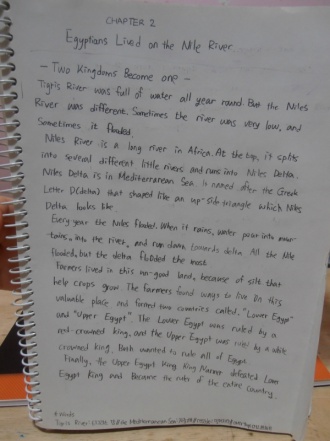 CHAPTER 2
Egyptians Lived on the Nile River
- Two Kingdoms Become one -
Tigris River was full of water all year round. But the Niles
River was different. Sometimes the river was very low, and
Sometimes it flooded.
Niles River is a long river in Africa. At the top, it splits
into several different little rivers and runs into Niles Delta.
Niles Delta is in Mediterranean Sea. Is named after the Greek
Letter D(delta) that shaped like an up-side triangle which Niles
Delta looks like
Every year the Niles flooded. When it rains, water pour into moun-
tains, into the river, and run down towards delta. All the Nile
flooded, but the delta flooded the most
Farmers lived in this not-good land, because of silt that
help crops grow. The farmers found ways to live on this
valuable place and formed two countries called. "Lower Egypt"
and "Upper Egypt". The Lower Egypt was ruled by a
red-crowned king, and the Upper Egypt was ruled by a white
crowned king. Both wanted to rule all of Egypt.
Finally, the Upper Egypt King, King Narmer defeated Lower
Egypt King and became the ruler of the entire Country.
Tigris River: Mediterranean Sea: